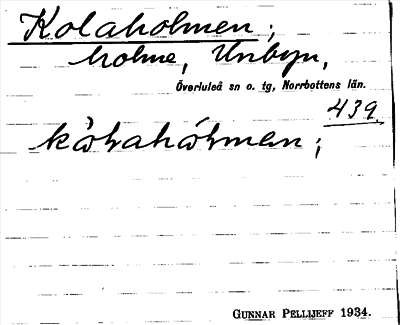 Kolaholmen;
holme, Unbyn,
Överluleå sn o. tg, Norrbottens län.
439.
GUNNAR PELLIJEFF 1934.